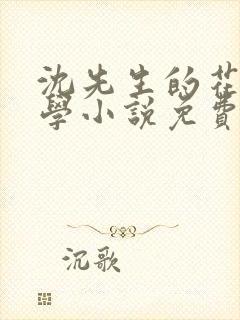 沈先生的花
學小說免費
沉歌